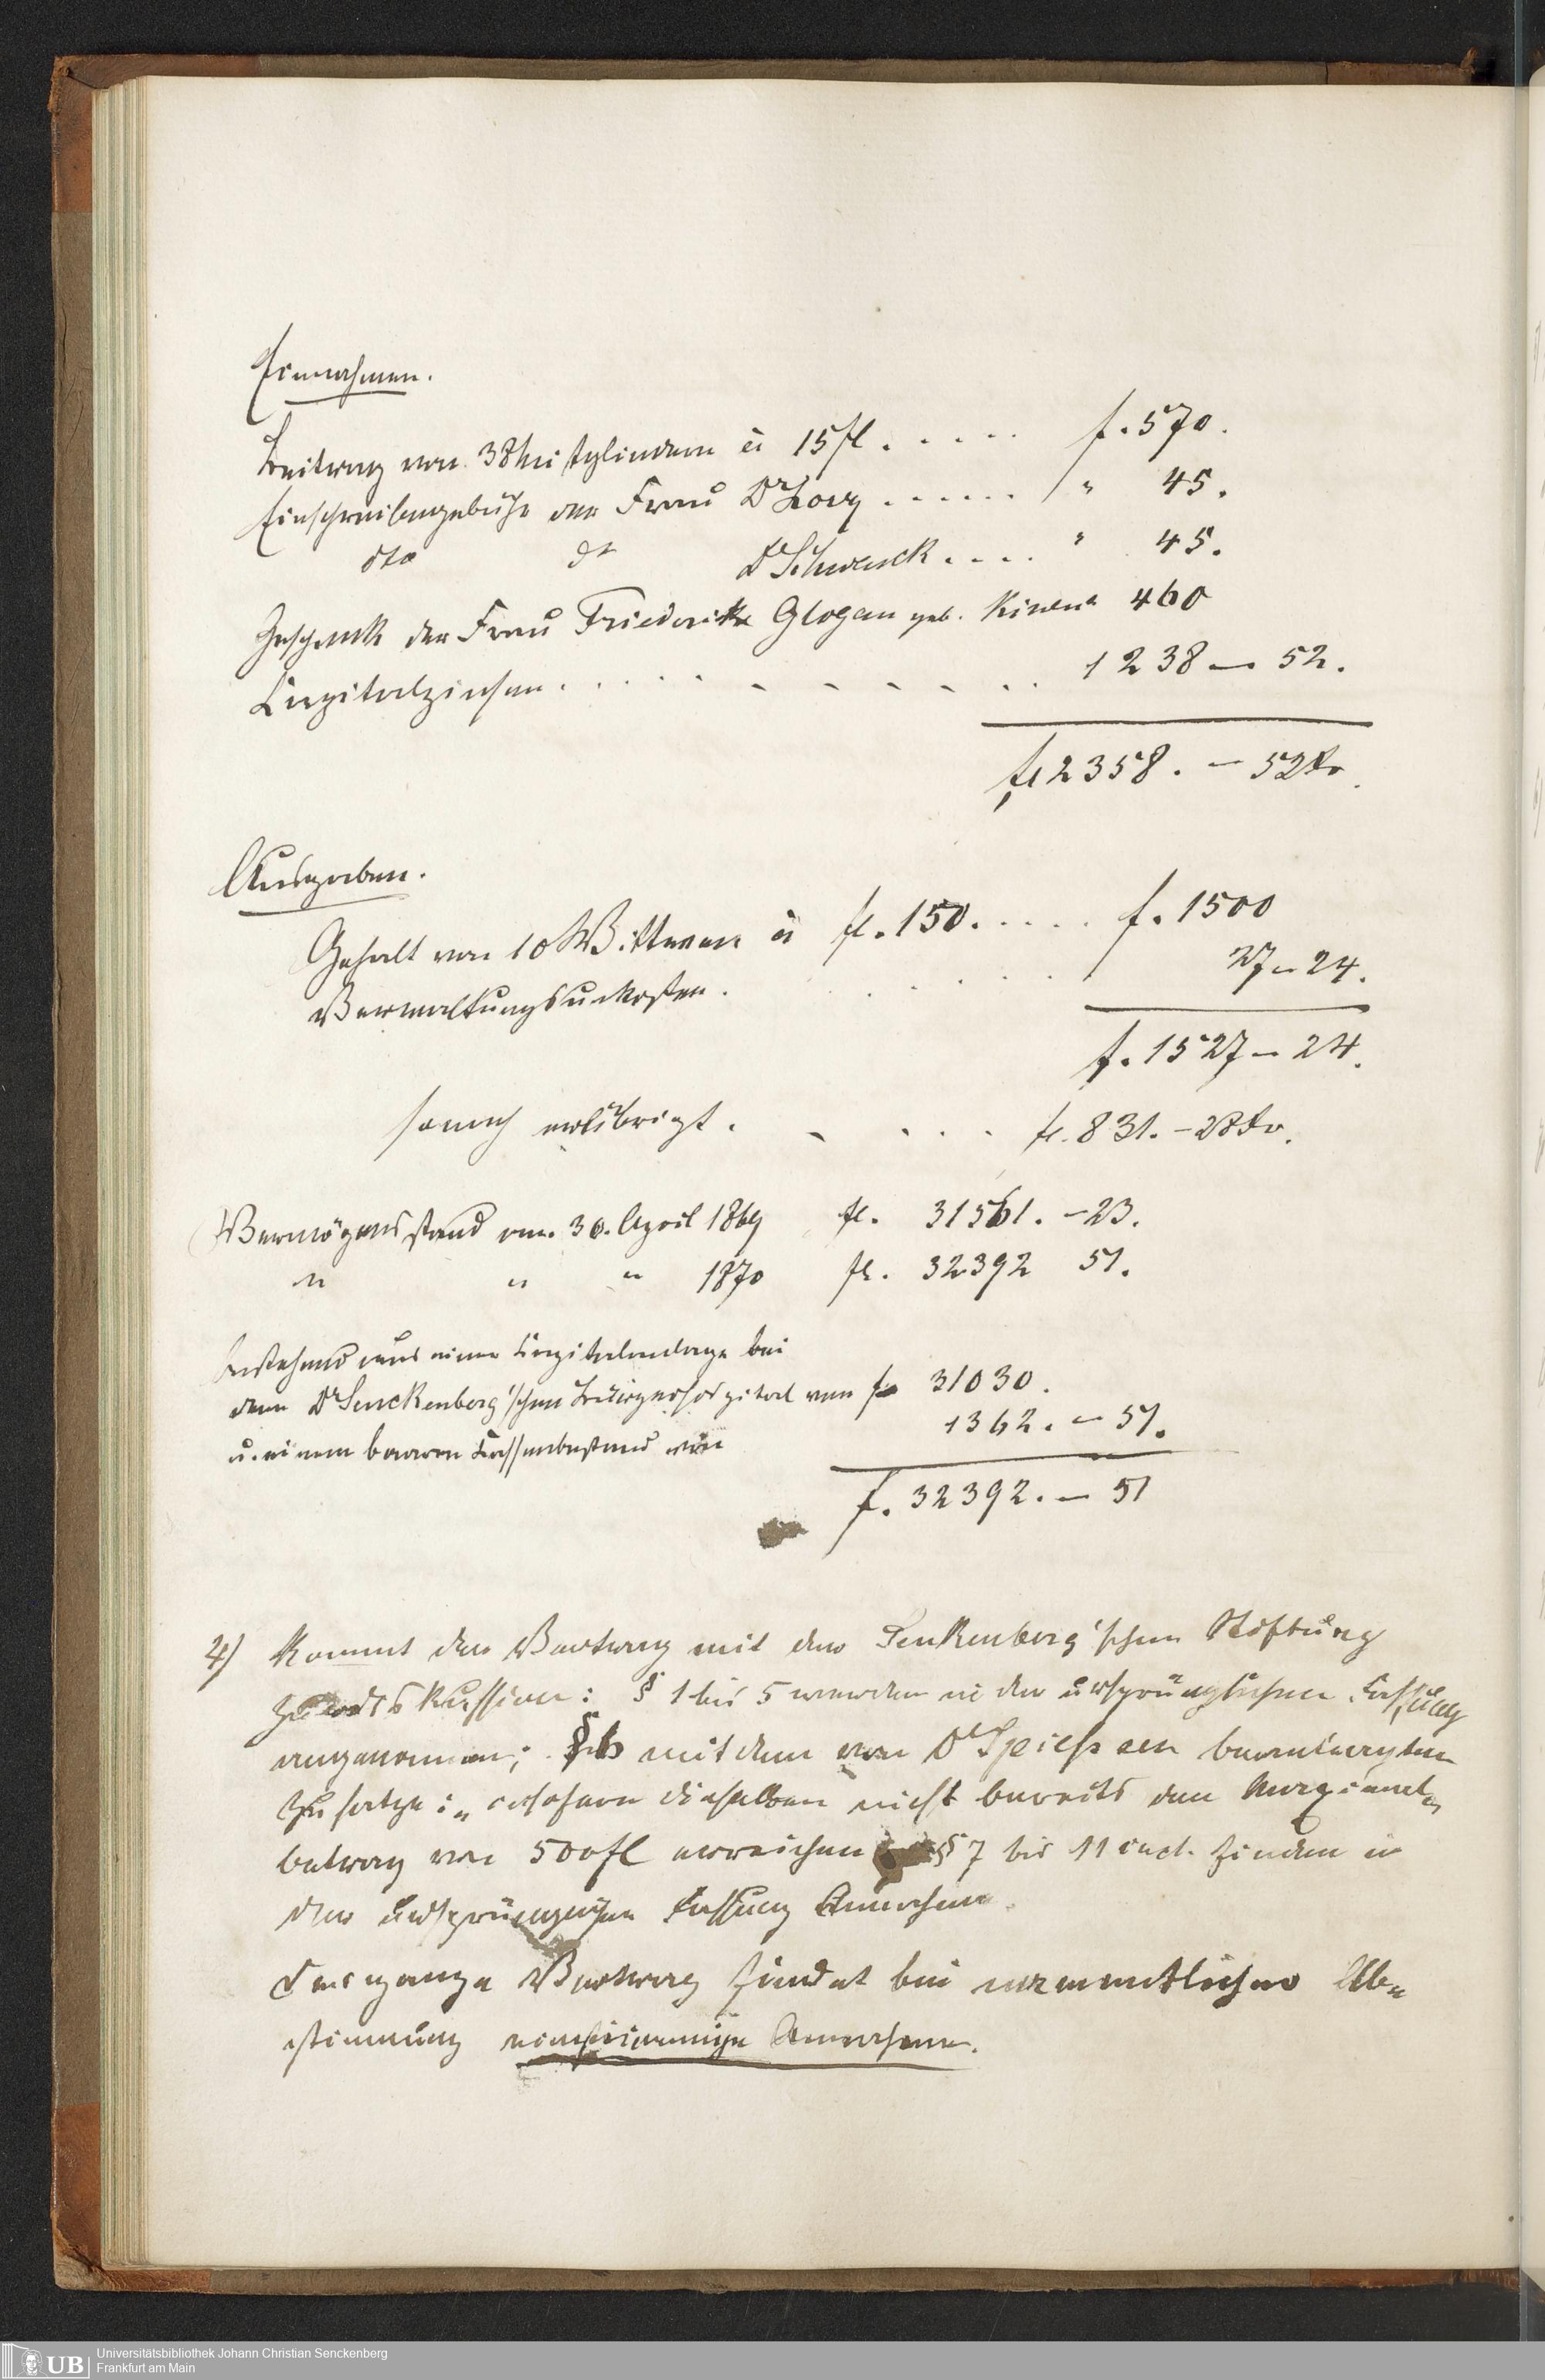 Einnahmen.
Beitrag von 38 Mitgliedern à 15 fl. . . . . . f. 570.
Einschreibengebühr der Frau Dr Lorey . . . . . . / " 45.
dto dt Dr Schwenck . . . . " 45.
Geschenk der Frau Friederike Glogau geb. 460
Capitalzinsen . . . . . . . . . . . . 1238 — 52.
fl 2358. — 52 Kr.
Ausgaben.
Gehalt von 10 Wittwen à fl. 150. . . . . f. 1500
Verwaltungsunkosten . . . . . . 27 — 24.
f. 1527 — 24.
sonach erübrigt . . . . . fl. 831. — 28 Kr.
Vermögensstand am 30. April 1869 fl. 31561. — 23.
" " " 1870 fl. 32392 51.
bestehend aus einer Capitalanlage bei
dem Dr Senckenberg'schen Bürgerhospital von f 31030.
u. einem baaren Cassenbestand von 1362. — 51.
f. 32392. — 51
4) Kommt der Vertrag mit der Senkenberg'schen Stiftung
zur Diskussion: § 1 bis 5 werden in der ursprünglichen Fassung
angenommen; § 6 mit dem von Dr Spiess sen beantragten
Zusatze: „ insofern dieselben nicht bereits den
betrag von 500 fl erreichen § 7 bis 11 incl. finden in
der ursprünglichen Fassung Annahme.
Der ganze Vertrag findet bei namentlicher Ab-
stimmung einstimmige Annahme.
UB
Universitätsbibliothek Johann Christian Senckenberg
Frankfurt am Main